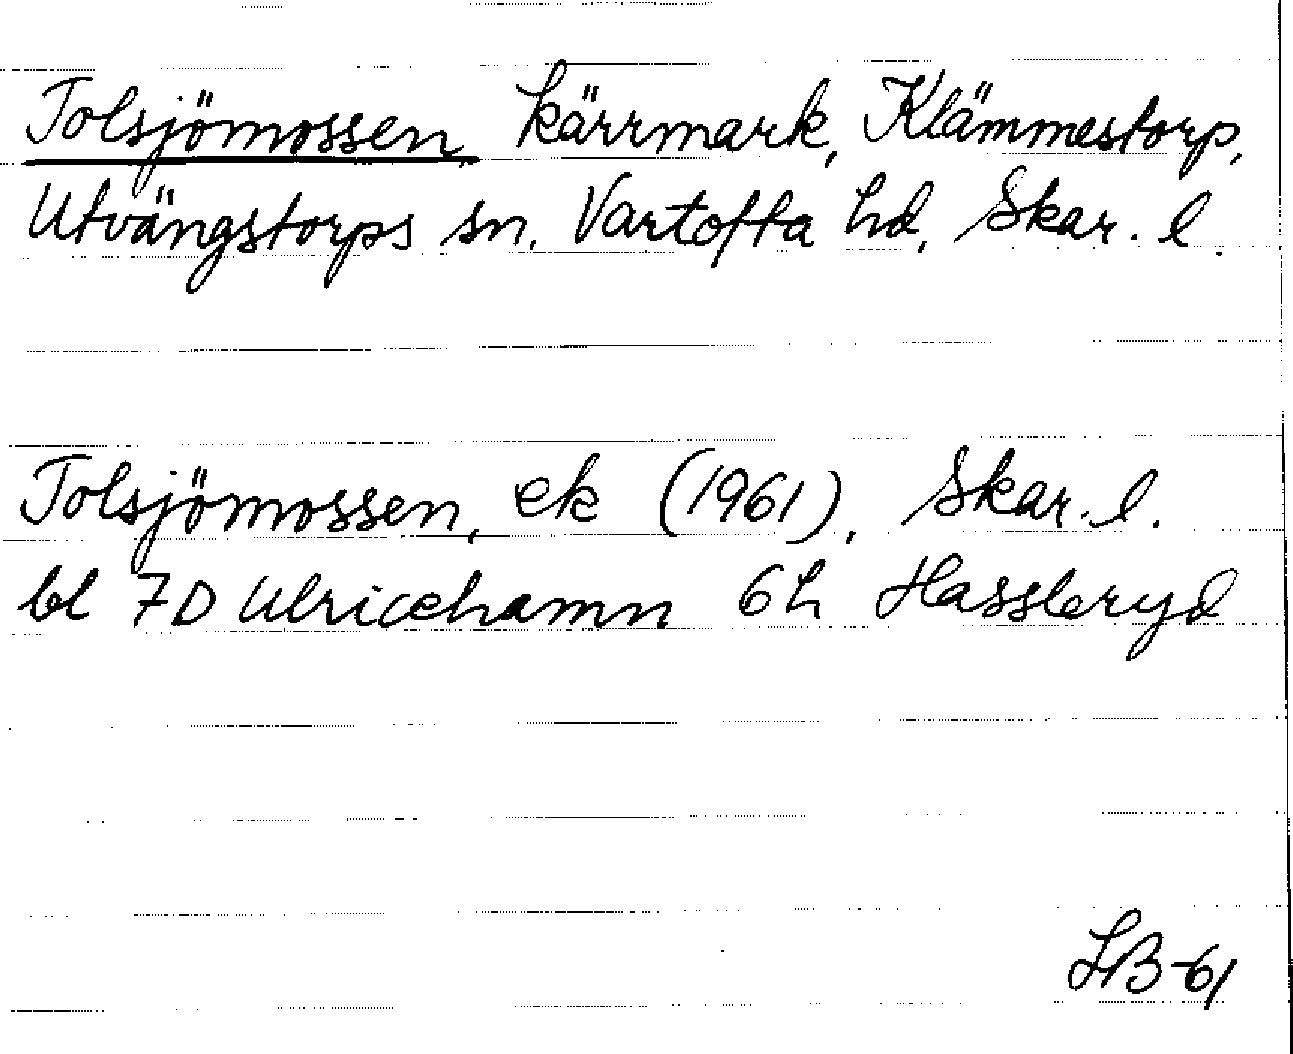 Tolsjömossen, kärrmark, Klämmestorp,
Utvängstorps sn, Vartofta hd, Skar. l.
Tolsjömossen, ek (1961), Skar. l.
bl 7D Ulricehamn 6h Hassleryd
LB-61